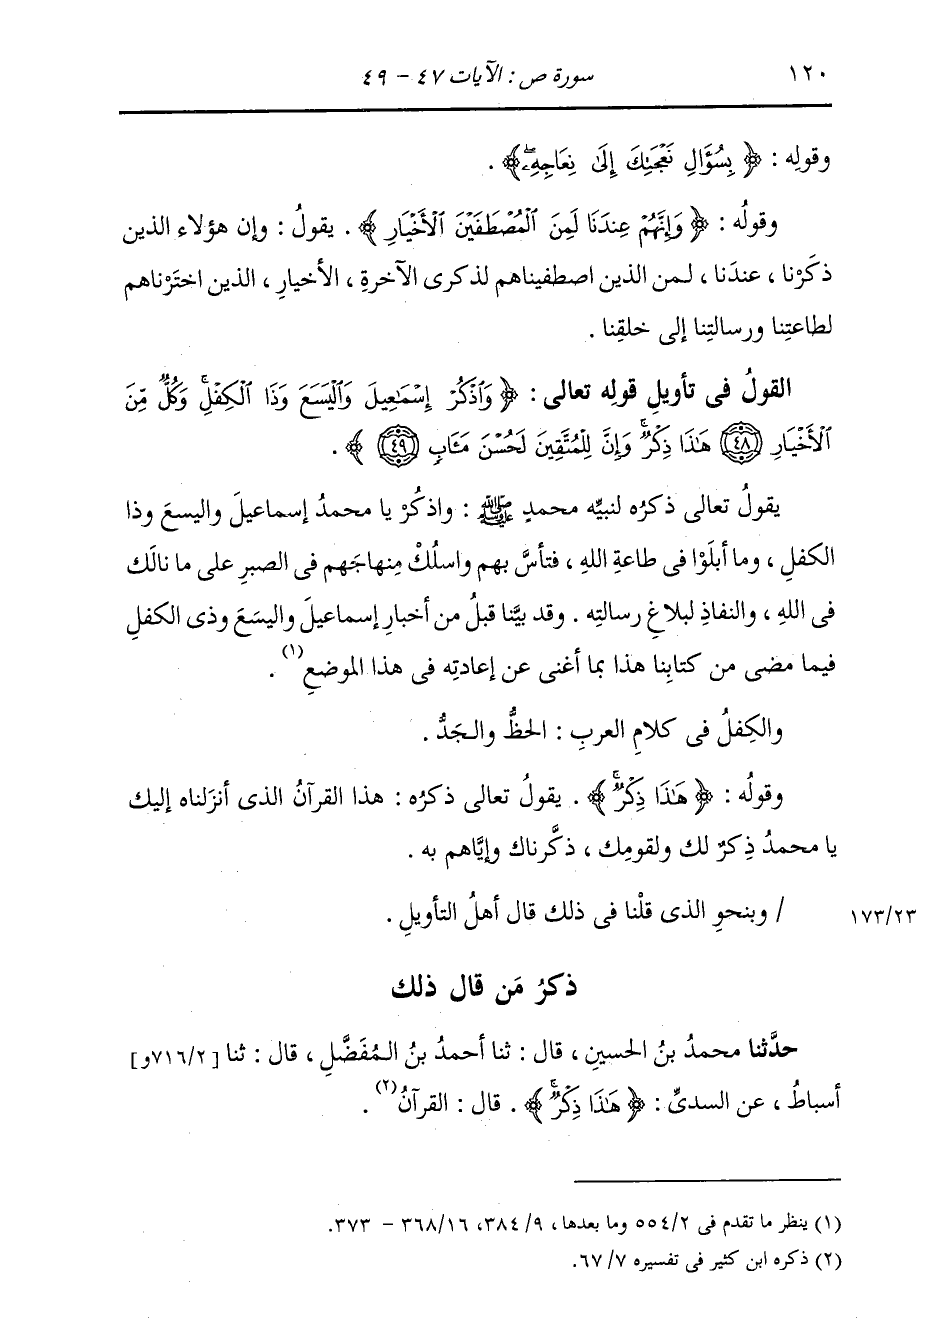 ١٢٠ سورة ص : الآيات ٤٧ - ٤٩
وقولِه : ﴿ بِسُؤَالِ نَعْجَتِكَ إِلَىٰ نِعَاجِهِۦ ﴾ .
وقولُه : ﴿ وَإِنَّهُمْ عِندَنَا لَمِنَ ٱلْمُصْطَفَيْنَ ٱلْأَخْيَارِ ﴾ . يقولُ : وإن هؤلاء الذين
ذكَرْنا ، عندَنا ، لـمن الذين اصطفيناهم لذكرى الآخرةِ ، الأخيارِ ، الذين اختَرْناهم
لطاعتِنا ورسالتِنا إلى خلقِنا .
القولُ فى تأويلِ قولِه تعالى : ﴿ وَٱذْكُرْ إِسْمَٰعِيلَ وَٱلْيَسَعَ وَذَا ٱلْكِفْلِ ۖ وَكُلٌّ مِّنَ
ٱلْأَخْيَارِ ﴿٤٨﴾ هَٰذَا ذِكْرٌ ۚ وَإِنَّ لِلْمُتَّقِينَ لَحُسْنَ مَـَٔابٍ ﴿٤٩﴾ ﴾ .
يقولُ تعالى ذكرُه لنبيِّه محمدٍ ﷺ : واذكُرْ يا محمدُ إسماعيلَ واليسعَ وذا
الكفلِ ، وما أبلَوْا فى طاعةِ اللهِ ، فتأسَّ بهم واسلُكْ مِنهاجَهم فى الصبرِ على ما نالَك
فى اللهِ ، والنفاذِ لبلاغِ رسالتِه . وقد بيَّنا قبلُ من أخبارِ إسماعيلَ واليسَعَ وذى الكفلِ
فيما مضى من كتابِنا هذا بما أغنى عن إعادتِه فى هذا الموضعِ(١) .
والكِفلُ فى كلامِ العربِ : الحظُّ والـجَدُّ .
وقولُه : ﴿ هَٰذَا ذِكْرٌ ۚ ﴾ . يقولُ تعالى ذكرُه : هذا القرآنُ الذى أنزَلناه إليك
يا محمدُ ذِكرٌ لك ولقومِك ، ذكَّرناك وإيَّاهم به .
١٧٣/٢٣ / وبنحوِ الذى قلْنا فى ذلك قال أهلُ التأويلِ .
ذكرُ مَن قال ذلك
حدَّثنا محمدُ بنُ الحسينِ ، قال : ثنا أحمدُ بنُ الـمُفَضَّلِ ، قال : ثنا [٧١٦/٢و]
أسباطُ ، عن السدىِّ : ﴿ هَٰذَا ذِكْرٌ ۚ ﴾ . قال : القرآنُ(٢) .
(١) ينظر ما تقدم فى ٥٥٤/٢ وما بعدها ، ٣٨٤/٩، ٣٦٨/١٦ - ٣٧٣.
(٢) ذكره ابن كثير فى تفسيره ٦٧/٧.